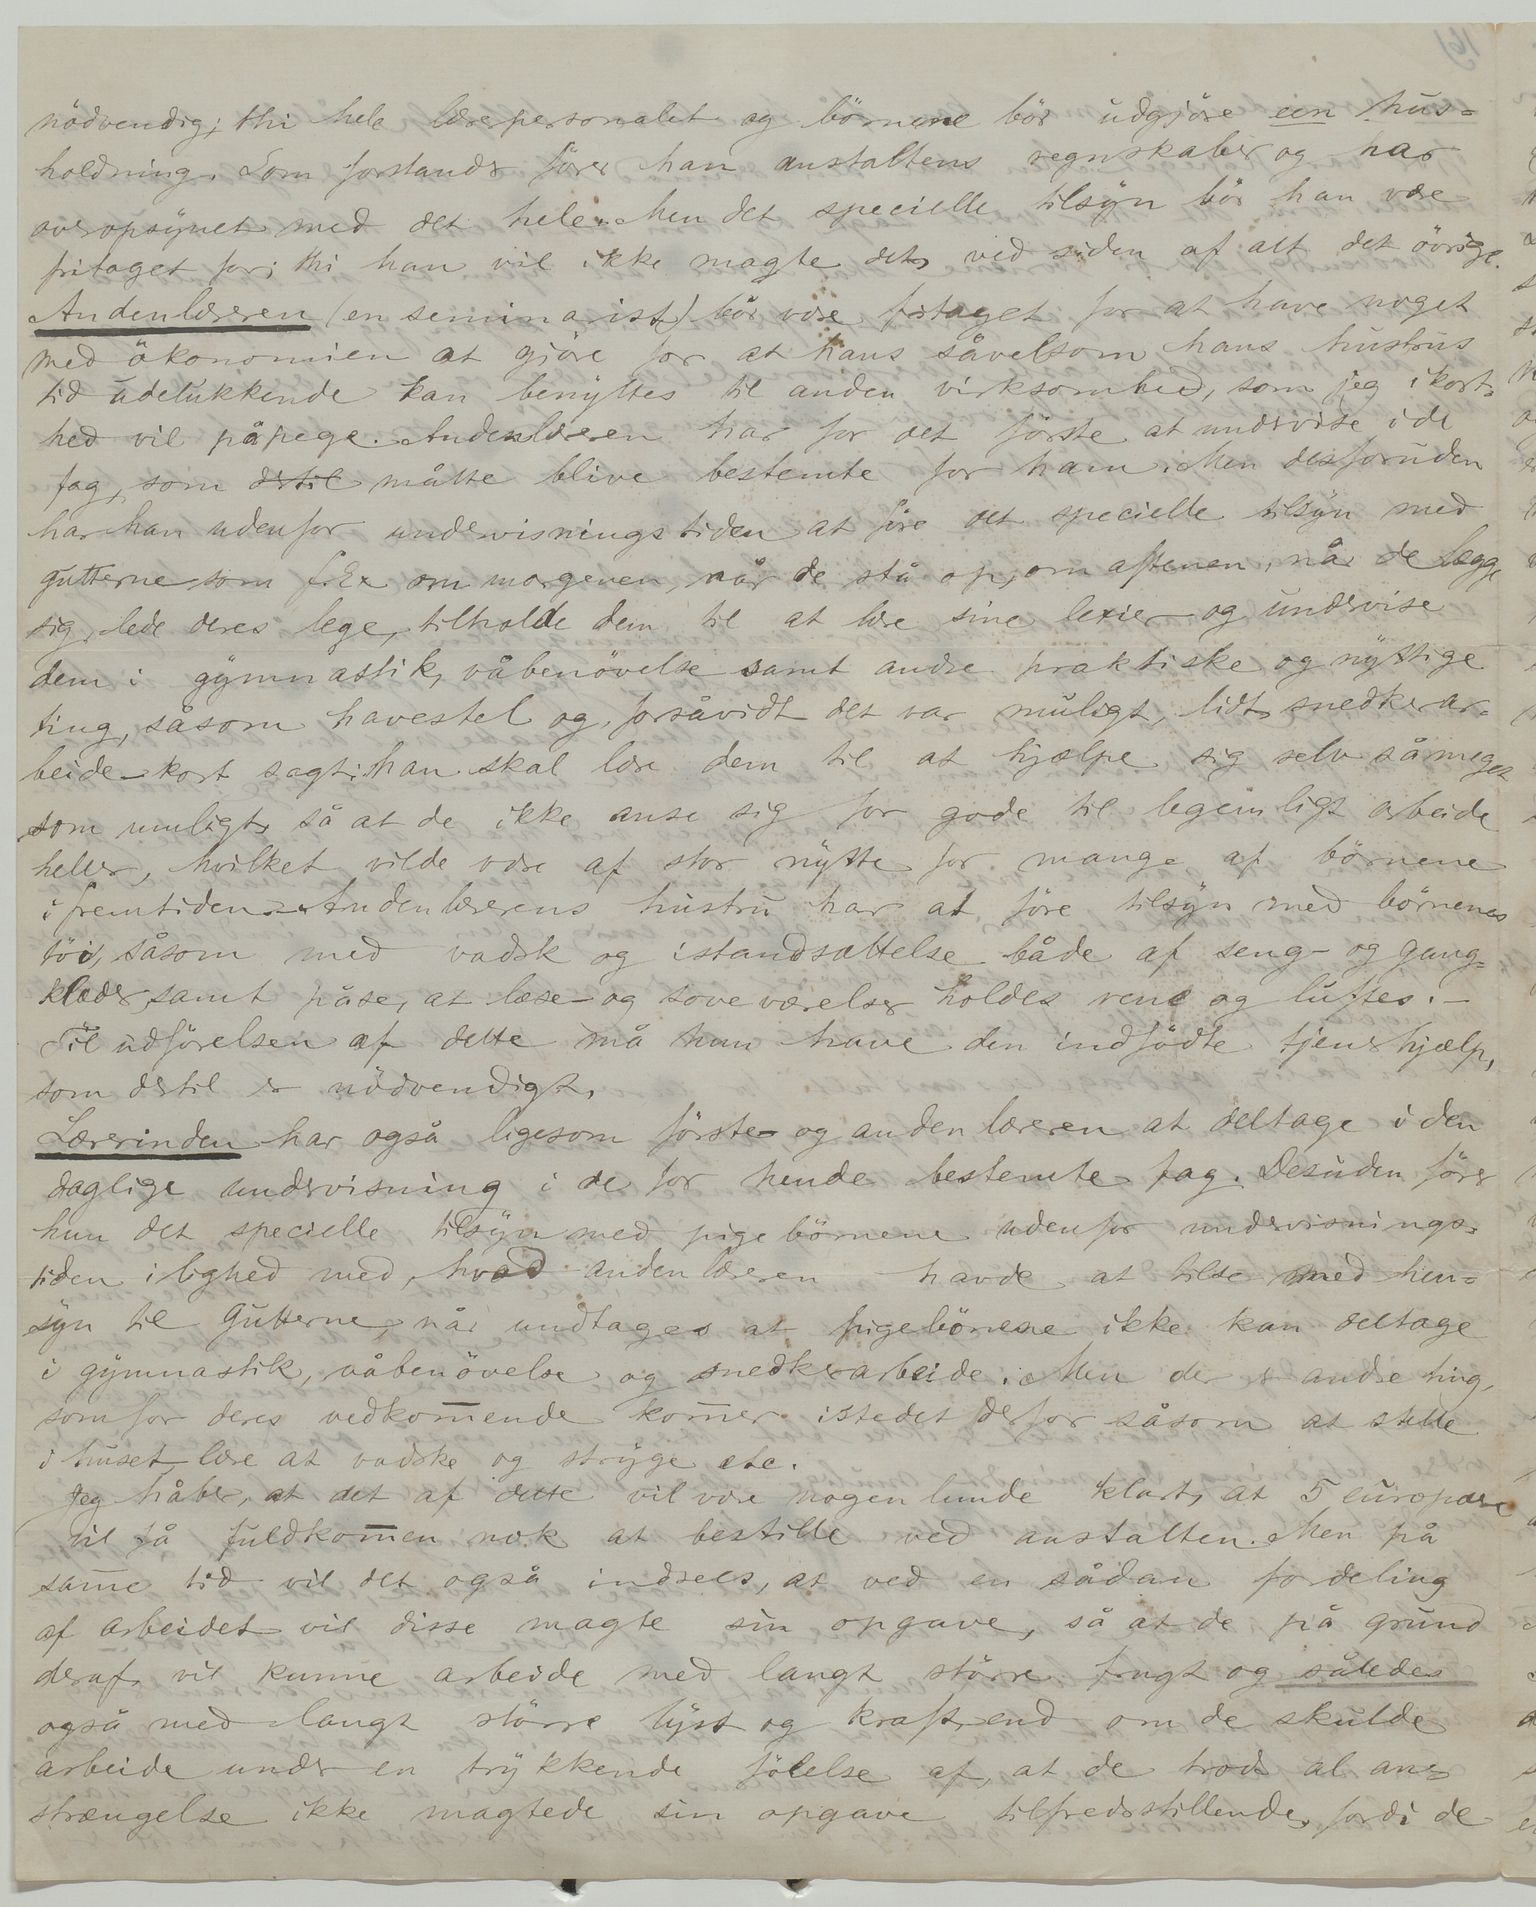 nödvendig; thi hele lærerpersonalet og börnene bör udgjöre een hus-
holdning. Som forstander förer han anstaltens regnskaber og har
overopsynet med det hele. Men det specielle tilsyn bör han være
fritaget for; thi han vil ikke magte det, ved siden af alt det övrige.
Andenlæreren (en seminarist) bör være fritaget for at have noget
med ökonomien at gjöre for at hans såvelsom hans hustrus
tid udelukkende kan benyttes til anden virksomhed, som jeg i kort-
hed vil påpege. Andenlæreren har for det förste at undervise i de
fag, som dertil måtte blive bestemte for ham. Men desforuden
har han udenfor undervisningstiden at före det specielle tilsyn med
gutterne som f.Ex om morgenen, når de stå op, om aftenen, når de lægge
sig, lede deres lege, tilholde dem til at lære sine lexier og undervise
dem i gymnastik, våbenövelse samt andre praktiske og nyttige
ting, såsom havestel og, forsåvidt det var muligt, lidt snedkerar-
beide – kort sagt: han skal lære dem til at hjælpe sig selv såmeget
som muligt, så at de ikke anse sig for gode til legemligt arbeide
heller, hvilket vilde være af stor nytte for mange af börnene
i fremtiden. – Andenlærerens hustru har at före tilsyn med börnenes
töi, såsom med vadsk og istandsættelse både af seng- og gang-
klæder, samt påse, at læse- og soveværelser holdes rene og luftes. –
Til udförelsen af dette må hun have den indfödte tjenerhjælp,
som dertil er nödvendigt.
Lærerinden har også ligesom förste- og andenlæreren at deltage i den
daglige undervisning i de for hende bestemte fag. Desuden förer
hun det specielle tilsyn med pigebörnene udenfor undervisnings-
tiden i lighed med, hvad andenlæreren havde at tilse med hen-
syn til gutterne, når undtages at pigebörnene ikke kan deltage
i gymnastik, våbenövelse og snedkerarbeide. Men der er andre ting,
som for deres vedkom̄ende kom̄er istedet derfor såsom at stelle
i huset, lære at vadske og stryge etc.
Jeg håber, at det af dette vil være nogenlunde klart, at 5 europære
vil få fuldkom̄en nok at bestille ved anstalten. Men på
sam̄e tid vil det også indsees, at ved en sådan fordeling
af arbeidet vil disse magte sin opgave, så at de på grund
deraf vil kunne arbeide med langt större frugt og således
også med langt större lyst og kraft, end om de skulde
arbeide under en trykkende fölelse af, at de trods al an-
strængelse ikke magtede sin opgave tilfredsstillende, fordi de